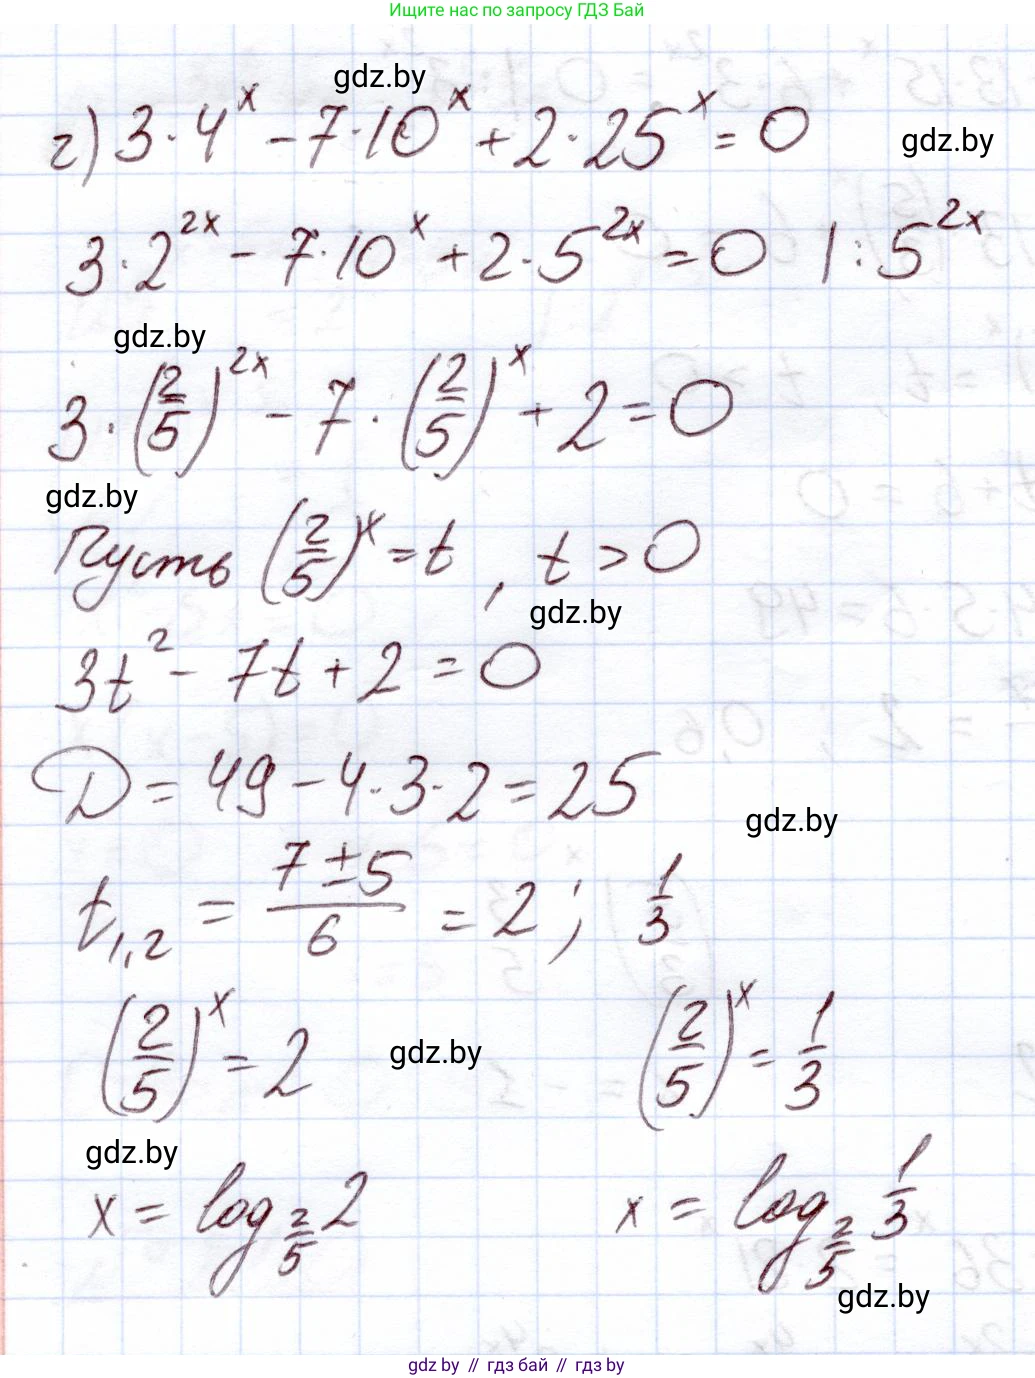 Ищите нас по запросу ГДЗ Бай
gdz.by
г) 3·4^x − 7·10^x + 2·25^x = 0
gdz.by
3·2^{2x} − 7·10^x + 2·5^{2x} = 0 |:5^{2x}
gdz.by
3·(2/5)^{2x} − 7·(2/5)^x + 2 = 0
gdz.by
Пусть (2/5)^x = t, t > 0
gdz.by
3t² − 7t + 2 = 0
D = 49 − 4·3·2 = 25
gdz.by
t_{1,2} = (7 ± 5)/6 = 2; 1/3
(2/5)^x = 2 (2/5)^x = 1/3
gdz.by
gdz.by
x = log_{2/5} 2 x = log_{2/5} 1/3
gdz.by
gdz by // гдз бай // gdz by